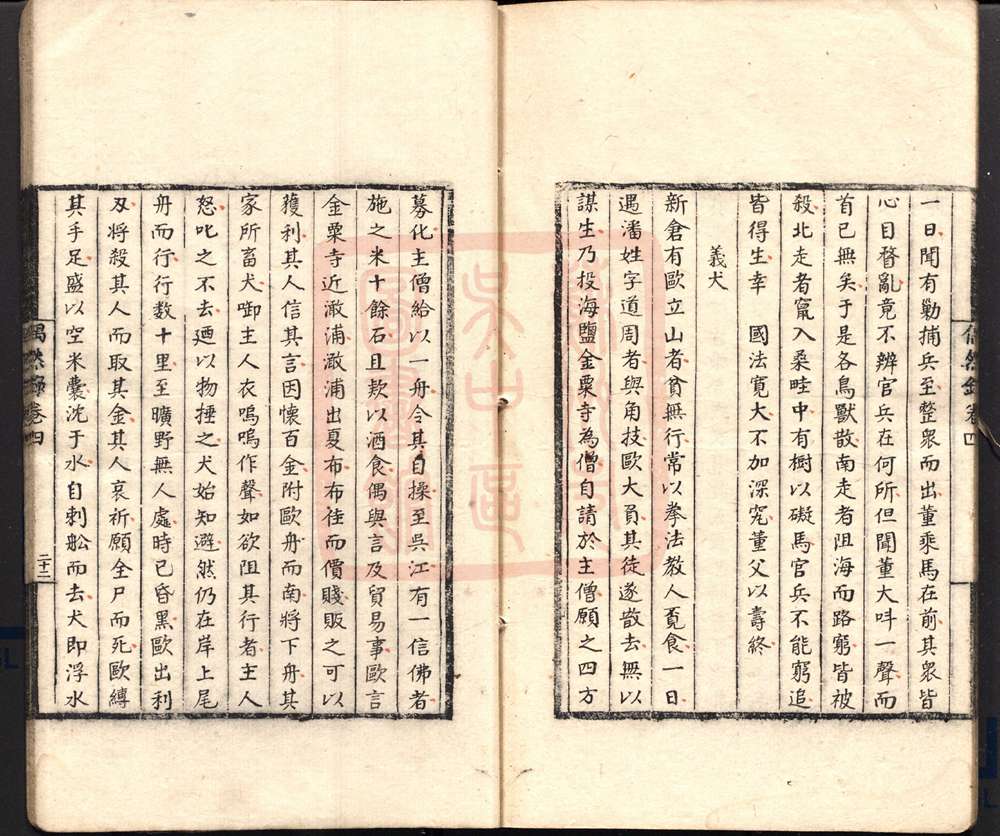 一日聞有勦捕兵至整衆而出董乘馬在前其衆皆
心目瞀亂竟不辨官兵在何所但聞董大呌一聲而
首已無矣于是各鳥獸散南走者阻海而路窮皆被
殺北走者竄入桑畦中有樹以礙馬官兵不能窮追
皆得生幸　國法寛大不加深究董父以壽終
義犬
新倉有歐立山者貧無行常以拳法教人覔食一日
遇潘姓字道周者與角技歐大負其徒遂散去無以
謀生乃投海鹽金粟寺為僧自請於主僧願之四方
募化主僧給以一舟令其自操至吳江有一信佛者
施之米十餘石且欵以酒食偶與言及貿易事歐言
金粟寺近澉浦澉浦出夏布布佳而價賤販之可以
獲利其人信其言因懷百金附歐舟而南將下舟其
家所畜犬啣主人衣嗚嗚作聲如欲阻其行者主人
怒叱之不去廼以物捶之犬始知避然仍在岸上尾
舟而行行数十里至曠野無人處時已昏黑歐出利
刄将殺其人而取其金其人哀祈願全尸而死歐縛
其手足盛以空米囊沈于水自刺舩而去犬即浮水
偶然録卷四
二十二